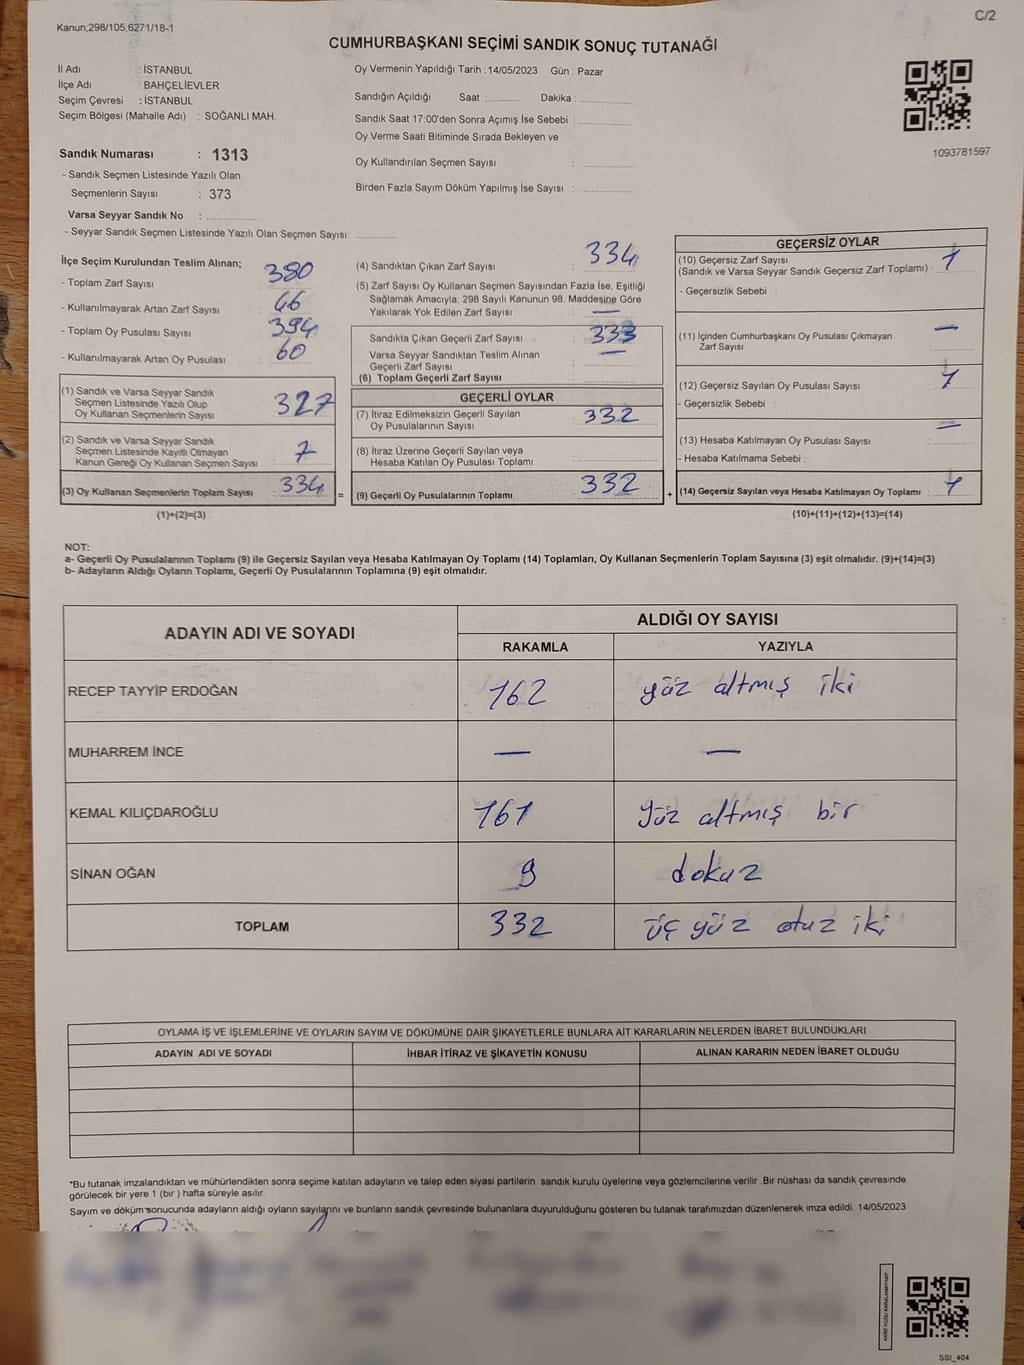 C/2
Kanun;298/105;6271/18-1
CUMHURBAŞKANI SEÇİMİ SANDIK SONUÇ TUTANAĞI
İl Adı : İSTANBUL
İlçe Adı : BAHÇELİEVLER
Seçim Çevresi : İSTANBUL
Seçim Bölgesi (Mahalle Adı) : SOĞANLI MAH.
Sandık Numarası : 1313
- Sandık Seçmen Listesinde Yazılı Olan
Seçmenlerin Sayısı : 373
Varsa Seyyar Sandık No : ..................
- Seyyar Sandık Seçmen Listesinde Yazılı Olan Seçmen Sayısı: ..............
Oy Vermenin Yapıldığı Tarih :14/05/2023 Gün : Pazar
Sandığın Açıldığı Saat :........... Dakika : .................
Sandık Saat 17:00'den Sonra Açımış İse Sebebi : .................
Oy Verme Saati Bitiminde Sırada Bekleyen ve
Oy Kullandırılan Seçmen Sayısı : .................
Birden Fazla Sayım Döküm Yapılmış İse Sayısı : .................
1093781597
İlçe Seçim Kurulundan Teslim Alınan;
- Toplam Zarf Sayısı : 380
- Kullanılmayarak Artan Zarf Sayısı : 46
- Toplam Oy Pusulası Sayısı : 394
- Kullanılmayarak Artan Oy Pusulası : 60
(1) Sandık ve Varsa Seyyar Sandık
Seçmen Listesinde Yazılı Olup
Oy Kullanan Seçmenlerin Sayısı : 327
(2) Sandık ve Varsa Seyyar Sandık
Seçmen Listesinde Kayıtlı Olmayan
Kanun Gereği Oy Kullanan Seçmen Sayısı : 7
(3) Oy Kullanan Seçmenlerin Toplam Sayısı : 334
(1)+(2)=(3)
=
(4) Sandıktan Çıkan Zarf Sayısı : 334
(5) Zarf Sayısı Oy Kullanan Seçmen Sayısından Fazla İse, Eşitliği
Sağlamak Amacıyla; 298 Sayılı Kanunun 98. Maddesine Göre
Yakılarak Yok Edilen Zarf Sayısı : —
Sandıkta Çıkan Geçerli Zarf Sayısı : 333
Varsa Seyyar Sandıktan Teslim Alınan : —
Geçerli Zarf Sayısı
(6) Toplam Geçerli Zarf Sayısı :
GEÇERLİ OYLAR
(7) İtiraz Edilmeksizin Geçerli Sayılan
Oy Pusulalarının Sayısı : 332
(8) İtiraz Üzerine Geçerli Sayılan veya
Hesaba Katılan Oy Pusulası Toplamı :
(9) Geçerli Oy Pusulalarının Toplamı : 332
+
GEÇERSİZ OYLAR
(10) Geçersiz Zarf Sayısı
(Sandık ve Varsa Seyyar Sandık Geçersiz Zarf Toplamı) : 1
- Geçersizlik Sebebi :
(11) İçinden Cumhurbaşkanı Oy Pusulası Çıkmayan : —
Zarf Sayısı
(12) Geçersiz Sayılan Oy Pusulası Sayısı : 1
- Geçersizlik Sebebi :
(13) Hesaba Katılmayan Oy Pusulası Sayısı : —
- Hesaba Katılmama Sebebi :
(14) Geçersiz Sayılan veya Hesaba Katılmayan Oy Toplamı : 1
(10)+(11)+(12)+(13)=(14)
NOT:
a- Geçerli Oy Pusulalarının Toplamı (9) ile Geçersiz Sayılan veya Hesaba Katılmayan Oy Toplamı (14) Toplamları, Oy Kullanan Seçmenlerin Toplam Sayısına (3) eşit olmalıdır. (9)+(14)=(3)
b- Adayların Aldığı Oyların Toplamı, Geçerli Oy Pusulalarının Toplamına (9) eşit olmalıdır.
ADAYIN ADI VE SOYADI ALDIĞI OY SAYISI
RAKAMLA YAZIYLA
RECEP TAYYİP ERDOĞAN 162 yüz altmış iki
MUHARREM İNCE — —
KEMAL KILIÇDAROĞLU 161 yüz altmış bir
SİNAN OĞAN 9 dokuz
TOPLAM 332 üç yüz otuz iki
OYLAMA İŞ VE İŞLEMLERİNE VE OYLARIN SAYIM VE DÖKÜMÜNE DAİR ŞİKAYETLERLE BUNLARA AİT KARARLARIN NELERDEN İBARET BULUNDUKLARI
ADAYIN ADI VE SOYADI İHBAR İTİRAZ VE ŞİKAYETİN KONUSU ALINAN KARARIN NEDEN İBARET OLDUĞU
*Bu tutanak imzalandıktan ve mühürlendikten sonra seçime katılan adayların ve talep eden siyasi partilerin sandık kurulu üyelerine veya gözlemcilerine verilir .Bir nüshası da sandık çevresinde
görülecek bir yere 1 (bir ) hafta süreyle asılır.
Sayım ve döküm sonucunda adayların aldığı oyların sayılarını ve bunların sandık çevresinde bulunanlara duyurulduğunu gösteren bu tutanak tarafımızdan düzenlenerek imza edildi. 14/05/2023
SSI_404